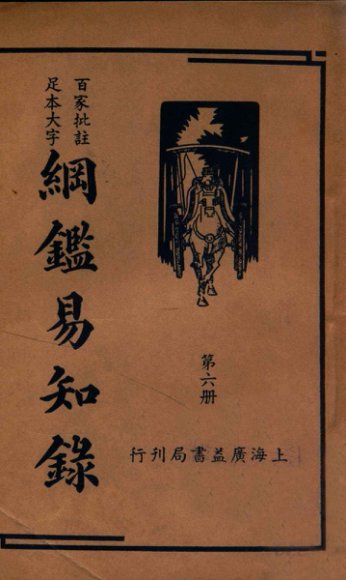 百家批註
足本大字
綱鑑易知錄
第六册
上海廣益書局刊行